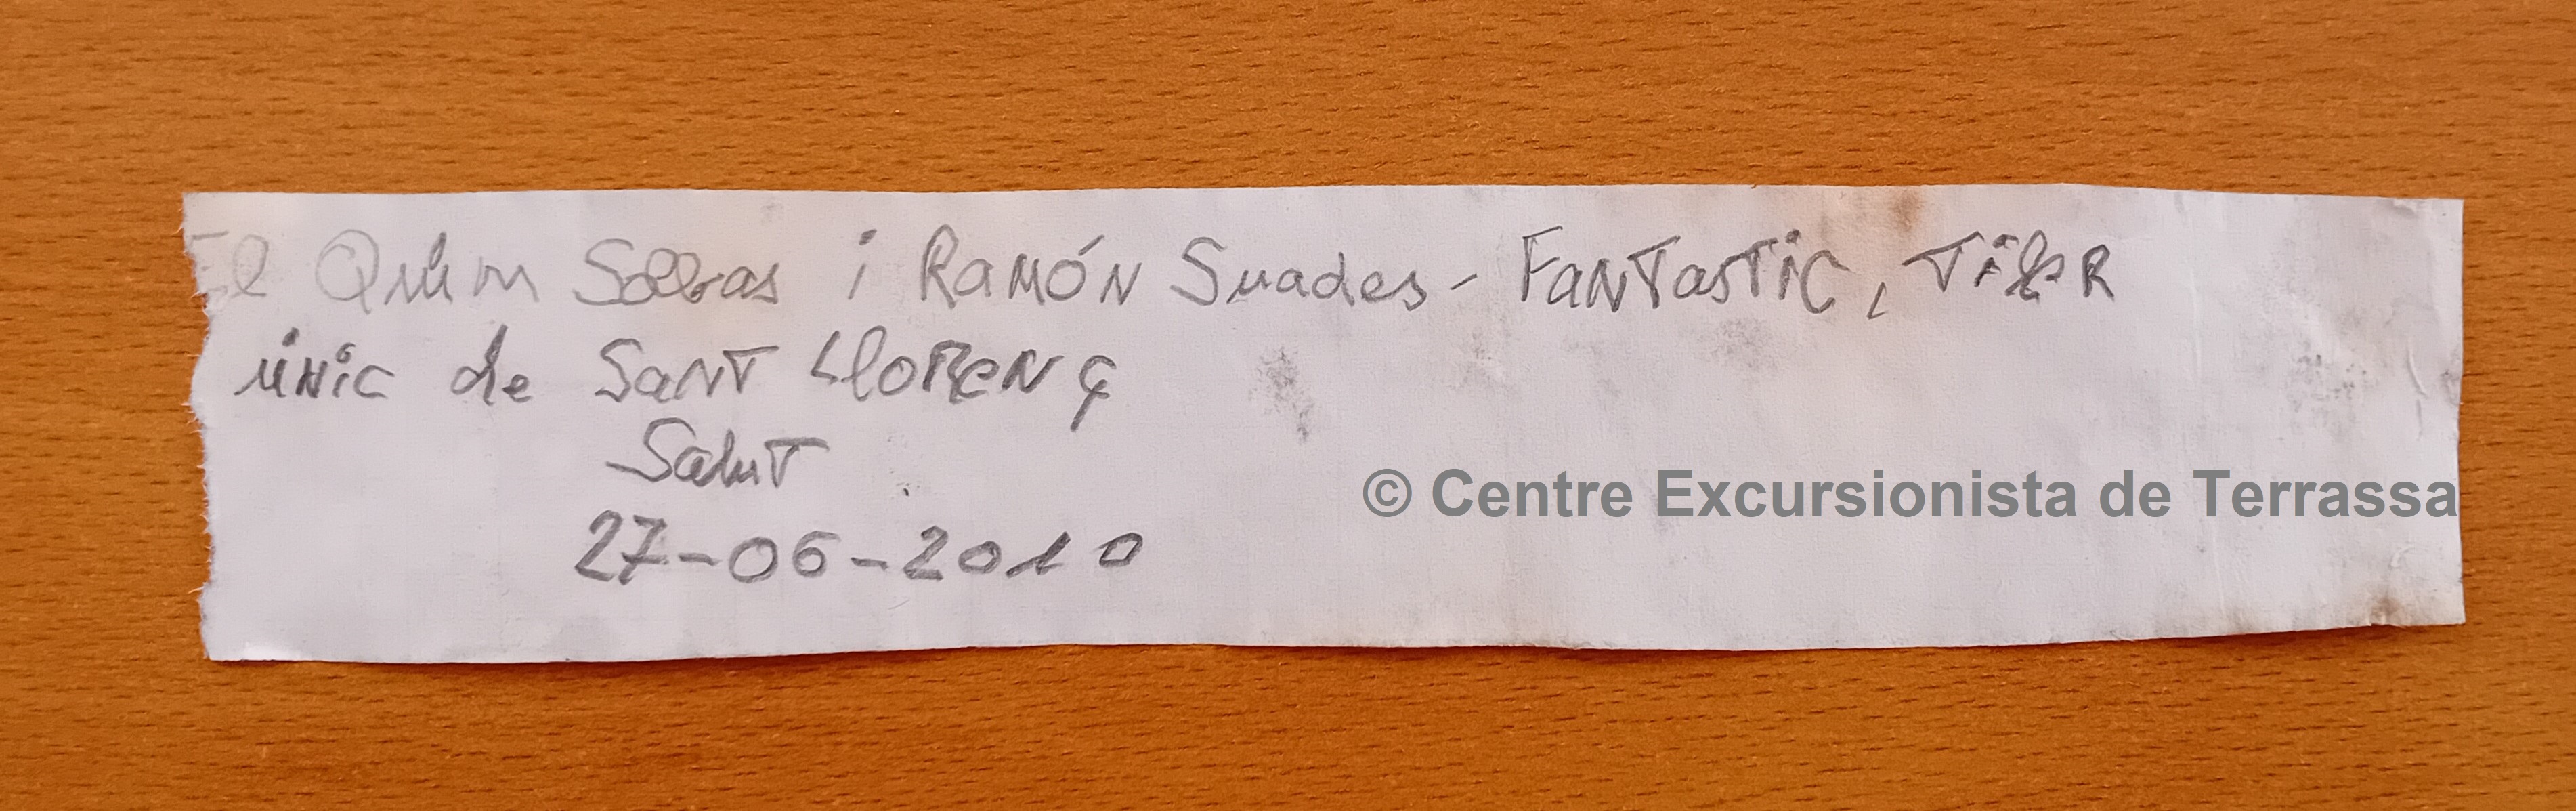 El Quim Solbas i Ramón Suades - Fantastic,
únic de Sant Llorenç
Salut
27-06-2010
© Centre Excursionista de Terrassa